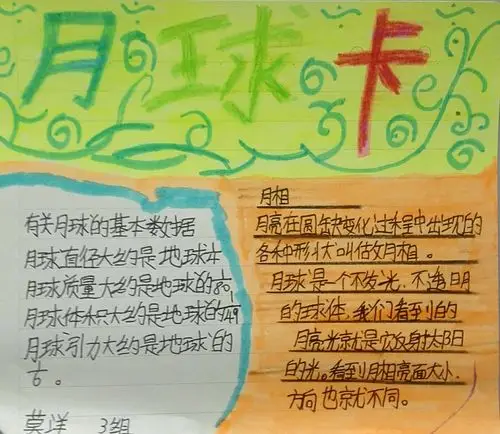 月球卡
有关月球的基本数据
月球直径大约是地球
月球质量大约是地球的1/80,
月球体积大约是地球的1/49
月球引力大约是地球的
1/6。
莫洋 3组
月相
月亮在圆缺变化过程中出现的
各种形状叫做月相。
月球是一个不发光,不透明
的球体,我们看到的
月亮光就是它反射太阳
的光。看到月相亮面大小,
方向也就不同。